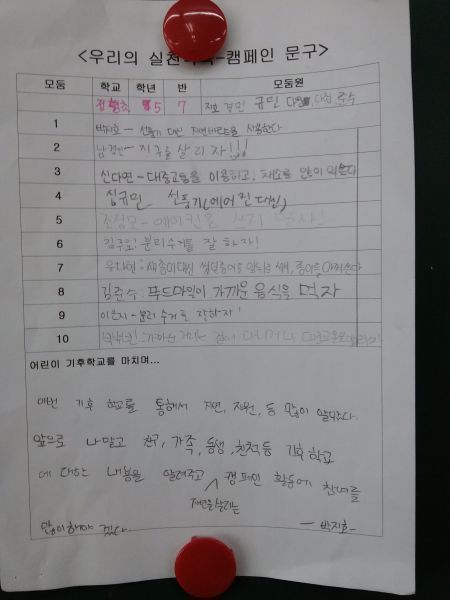 <우리의 실천 -캠페인 문구>
모둠 학교 학년 반 모둠원
5 7 지호 경민 규민 준수
1 박지호 - 선풍기 대신 자연바람을 사용한다
2 남경민 - 지구를 살리자!!!
3 신다연 - 대중교통을 이용하고, 채소를 많이 먹는다
4 심규민 선풍기(에어컨 대신)
5 조성모 - 에어컨을 쓰지
6 김주호: 분리수거를 잘 하자!
7 우다현:
8 김준수: 푸드마일이 가까운 음식을 먹자
9 이은지 - 분리수거를 잘하자!
10 가까운 거리는 걸어 다니거나
어린이 기후학교를 마치며...
이번 기후 학교를 통해서 자연, 자원, 등 많이 알았다.
앞으로 나 말고 친구, 가족, 동생, 친척등 기후 학교
에 대한 내용을 알려주고 캠페인 활동에 참여를
자연을 살리는
많이해야 겠다. - 박지호 -